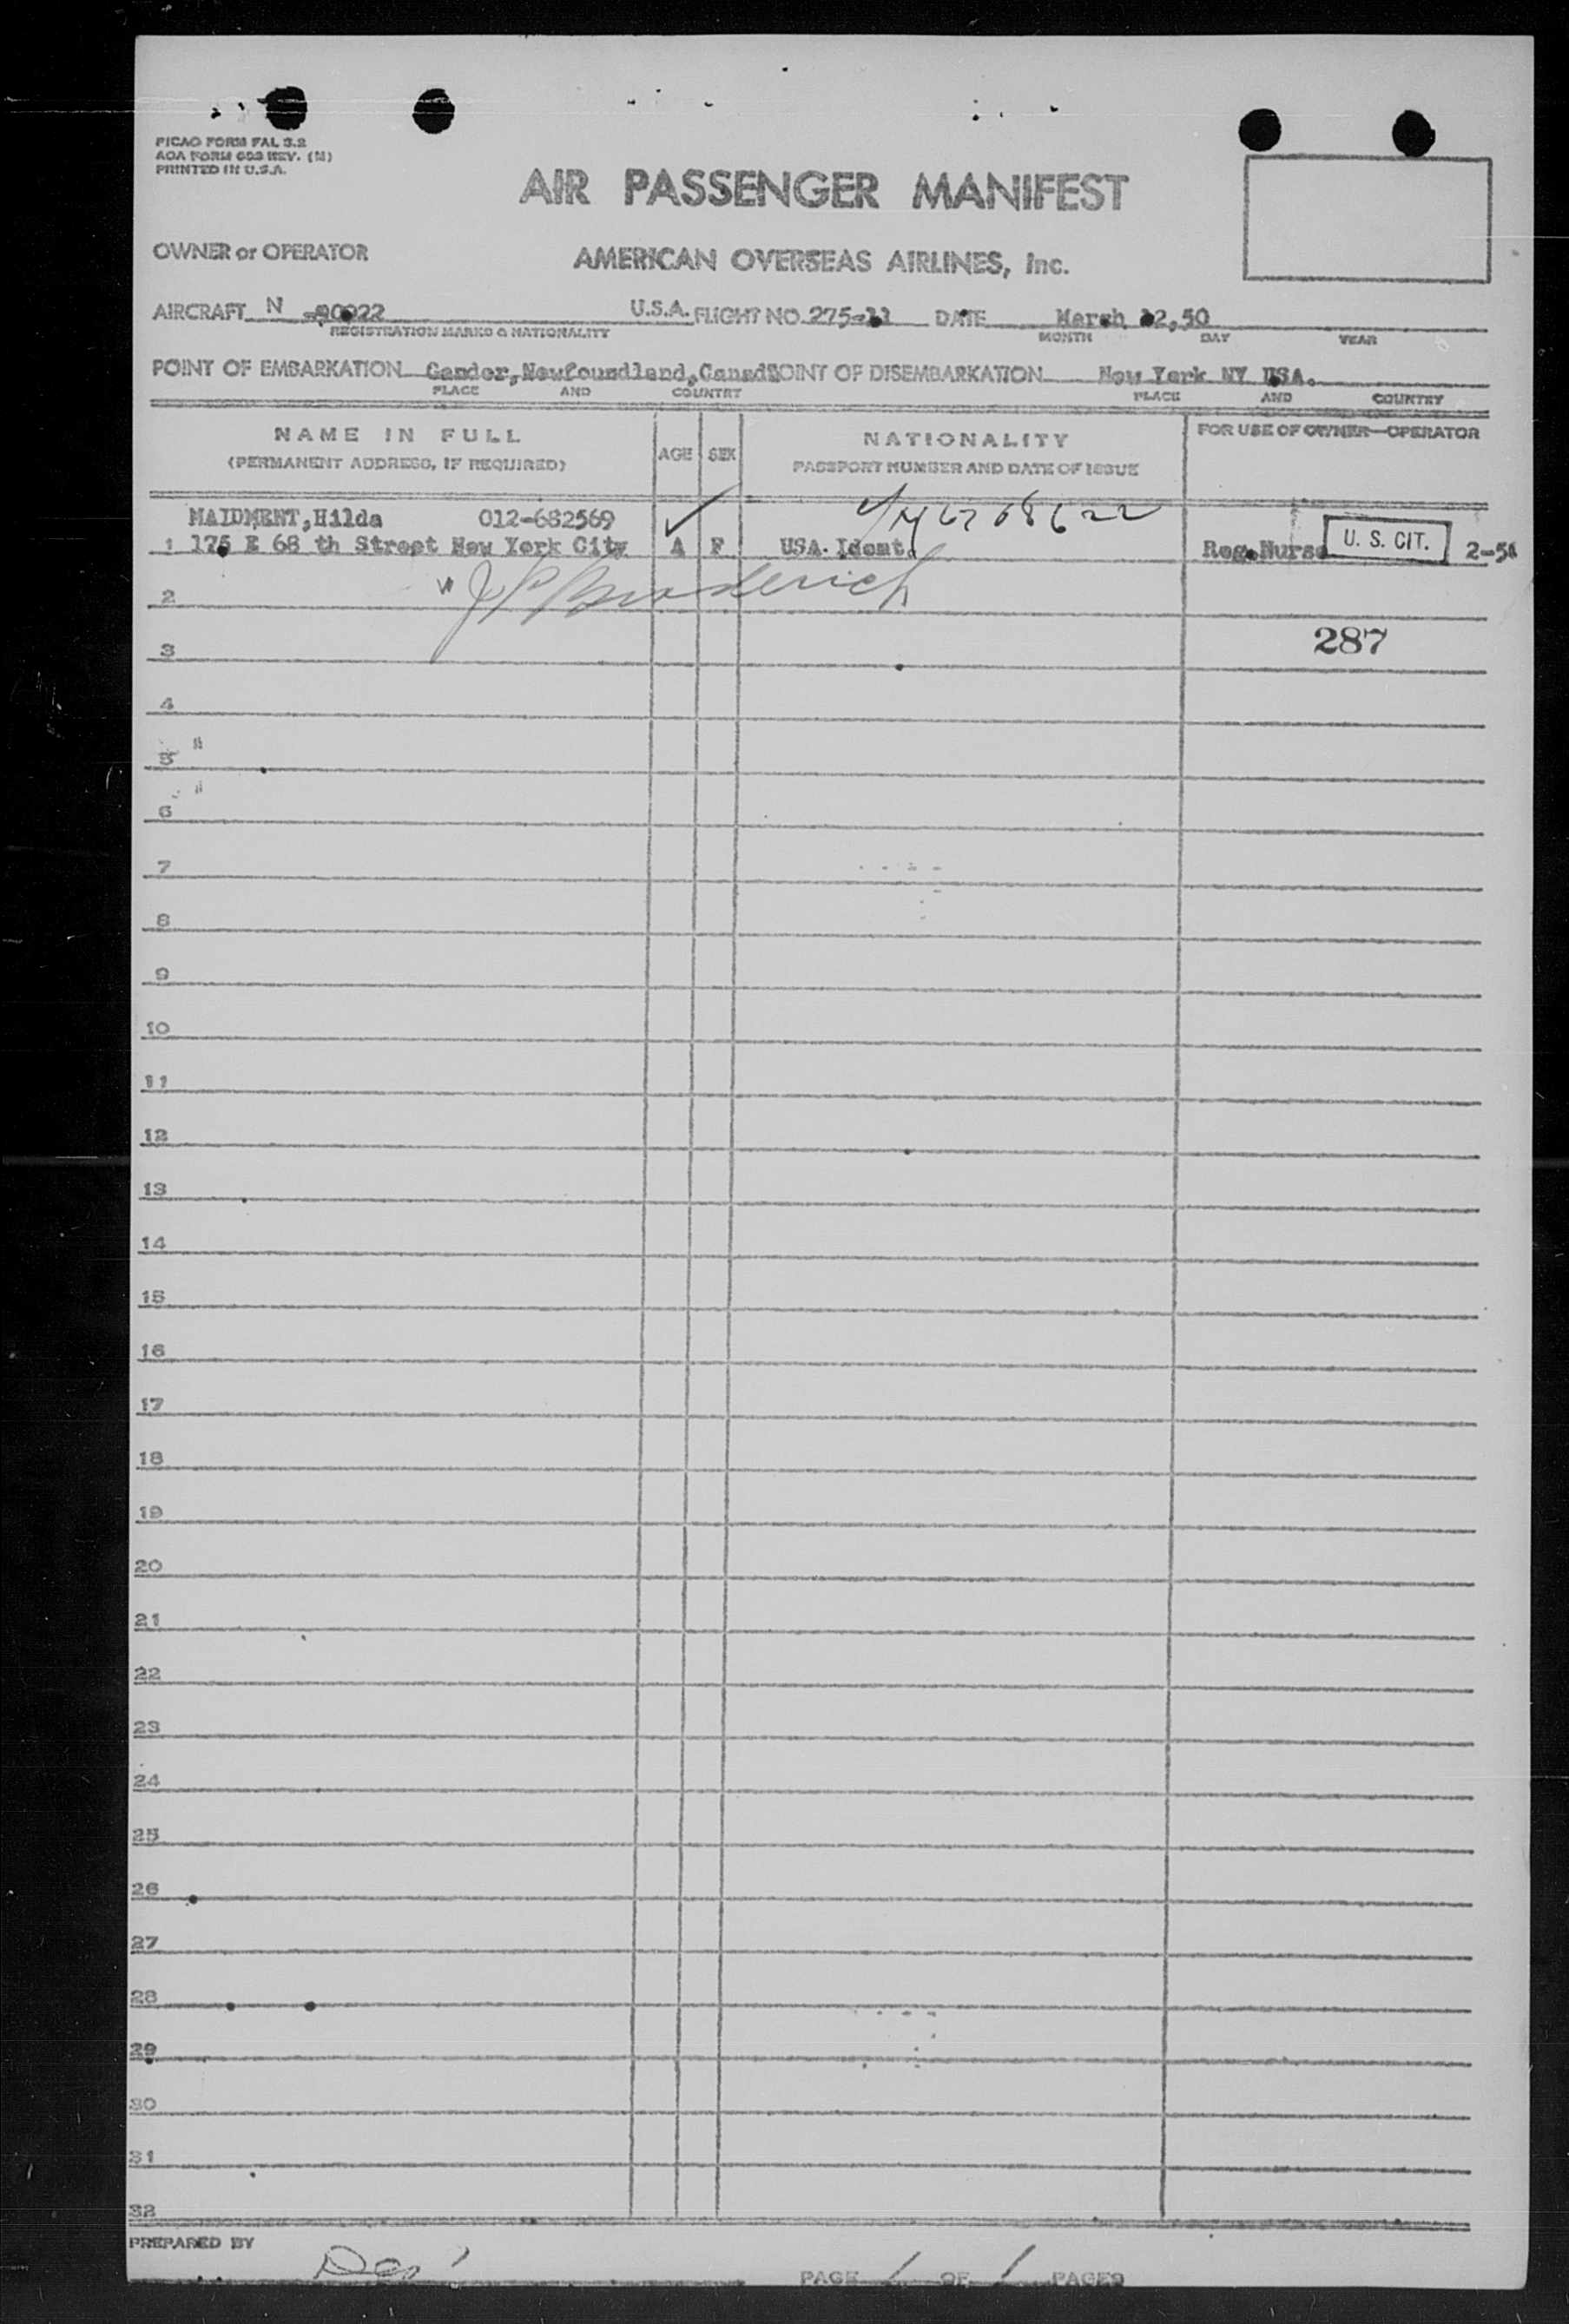 PICAO FORM FAL 3.2
AOA FORM 603 REV. (M)
PRINTED IN U.S.A.
AIR PASSENGER MANIFEST
OWNER or OPERATOR AMERICAN OVERSEAS AIRLINES, Inc.
AIRCRAFT N -90922 U.S.A. FLIGHT NO. 275-11 DATE March 12,50
REGISTRATION MARKS & NATIONALITY MONTH DAY YEAR
POINT OF EMBARKATION Gander,Newfoundland,Canada POINT OF DISEMBARKATION New York NY USA.
PLACE AND COUNTRY PLACE AND COUNTRY
NAME IN FULL AGE SEX NATIONALITY FOR USE OF OWNER—OPERATOR
(PERMANENT ADDRESS, IF REQUIRED) PASSPORT NUMBER AND DATE OF ISSUE
MAIDMENT,Hilda 012-682569
1 175 E 68 th Street New York City A F USA. Ident. Reg.Nurse U. S. CIT. 2-5
2 Broderick
287
3
4
5
6
7
8
9
10
11
12
13
14
15
16
17
18
19
20
21
22
23
24
25
26
27
28
29
30
31
32
PREPARED BY
PAGE 1 OF 1 PAGES